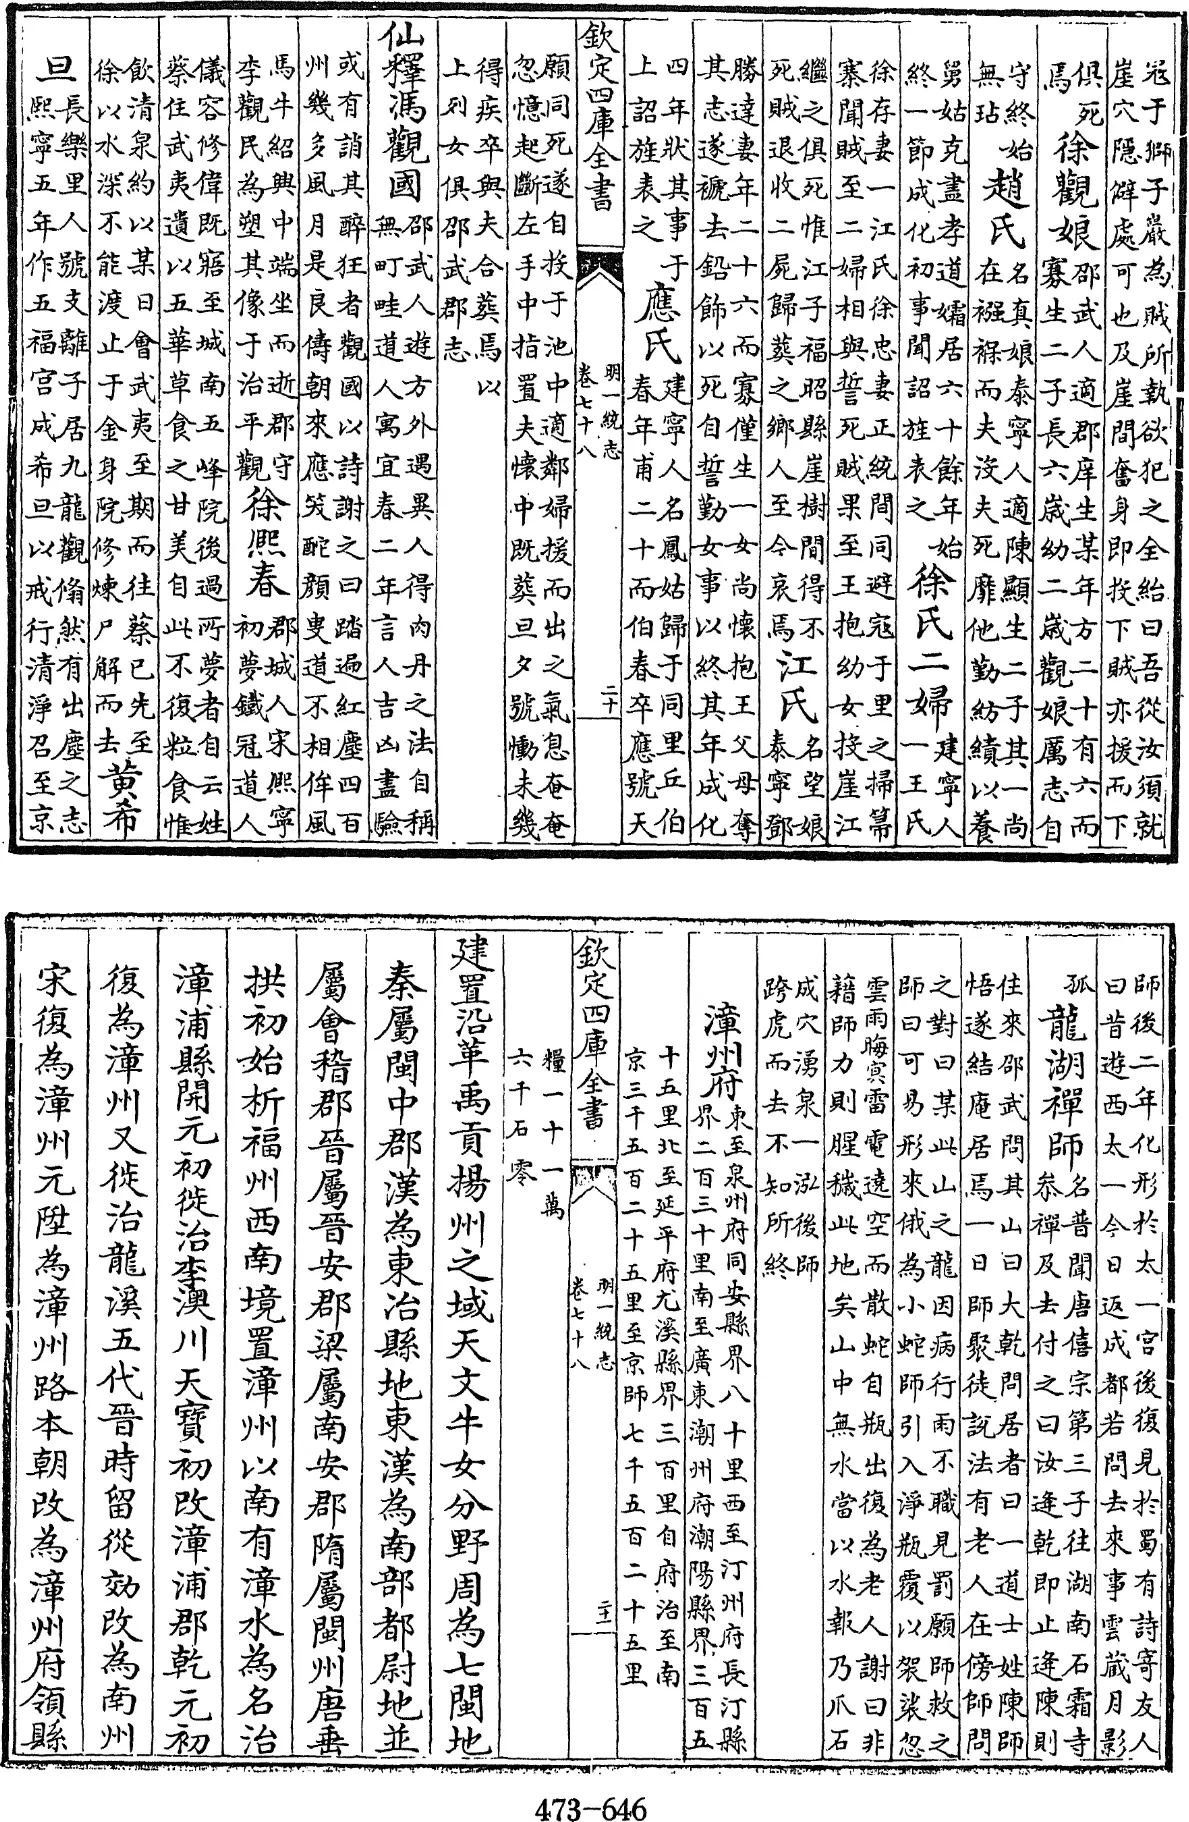 冦于獅子巖為賊所執欲犯之全紿曰吾從汝須就
崖穴隱僻處可也及崖間奮身即投下賊亦援而下
俱死
焉
徐觀娘
邵武人適郡庠生某年方二十有六而
寡生二子長六歲幼二歲觀娘厲志自
守終始
無玷
趙氏
名真娘泰寧人適陳顯生二子其一尚
在襁褓而夫沒夫死靡他勤紡績以養
舅姑克盡孝道孀居六十餘年始
終一節成化初事聞詔旌表之
徐氏二婦
建寧人
一王氏
徐存妻一江氏徐忠妻正統間同避寇于里之掃箒
寨聞賊至二婦相與誓死賊果至王抱幼女投崖江
繼之俱死惟江子福昭縣崖樹間得不
死賊退收二屍歸葬之鄉人至今哀焉
江氏
名望娘
泰寧鄧
勝達妻年二十六而寡僅生一女尚懷抱王父母奪
其志遂褫去鉛飾以死自誓勤女事以終其年成化
四年狀其事于
上詔旌表之
應氏
建寧人名鳳姑歸于同里丘伯
春年甫二十而伯春卒應號天
欽定四庫全書
明一統志
卷七十八
二十
願同死遂自投于池中適鄰婦援而出之氣息奄奄
忽憶起斷左手中指置夫懷中既葬旦夕號慟未幾
得疾卒與夫合葬焉以
上列女俱邵武郡志
仙釋馮觀國
邵武人遊方外遇異人得内丹之法自稱
無町畦道人寓宜春二年言人吉凶盡驗
或有誚其醉狂者觀國以詩謝之曰踏遍紅塵四百
州幾多風月是良儔朝來應笑酡顏叟道不相侔風
馬牛紹興中端坐而逝郡守
李觀民為塑其像于治平觀
徐熈春
郡城人宋熈寧
初夢鐵冠道人
儀容修偉既寤至城南五峰院後過所夢者自云姓
蔡住武夷遺以五華草食之甘美自此不復粒食惟
飲清泉約以某日會武夷至期而往蔡已先至
徐以水深不能渡止于金身院修煉尸解而去
黄希
旦
長樂里人號支離子居九龍觀翛然有出塵之志
熙寧五年作五福宫成希旦以戒行清淨召至京
師後二年化形於太一宫後復見於蜀有詩寄友人
曰昔遊西太一今日返成都若問去來事雲藏月影
孤
龍湖禪師
名普聞唐僖宗第三子往湖南石霜寺
叅禪及去付之曰汝逢乾即止逢陳則
住來邵武問其山曰大乾問居者曰一道士姓陳師
悟遂結庵居焉一日師聚徒説法有老人在傍師問
之對曰某此山之龍因病行雨不職見罰願師救之
師曰可易形來俄為小蛇師引入淨瓶覆以袈裟忽
雲雨晦冥雷電遶空而散蛇自瓶出復為老人謝曰非
藉師力則腥穢此地矣山中無水當以水報乃爪石
成穴湧泉一泓後師
跨虎而去不知所終
漳州府
東至泉州府同安縣界八十里西至汀州府長汀縣
界二百三十里南至廣東潮州府潮陽縣界三百五
十五里北至延平府尤溪縣界三百里自府治至南
京三千五百二十五里至京師七千五百二十五里
欽定四庫全書
明一統志
卷七十八
二十一
糧一十一萬
六千石零
建置沿革禹貢揚州之域天文牛女分野周為七閩地
秦屬閩中郡漢為東冶縣地東漢為南部都尉地並
屬會稽郡晉屬晉安郡梁屬南安郡隋屬閩州唐垂
拱初始析福州西南境置漳州以南有漳水為名治
漳浦縣開元初徙治李澳川天寶初改漳浦郡乾元初
復為漳州又徙治龍溪五代晉時留從効改為南州
宋復為漳州元陞為漳州路本朝改為漳州府領縣
473-646